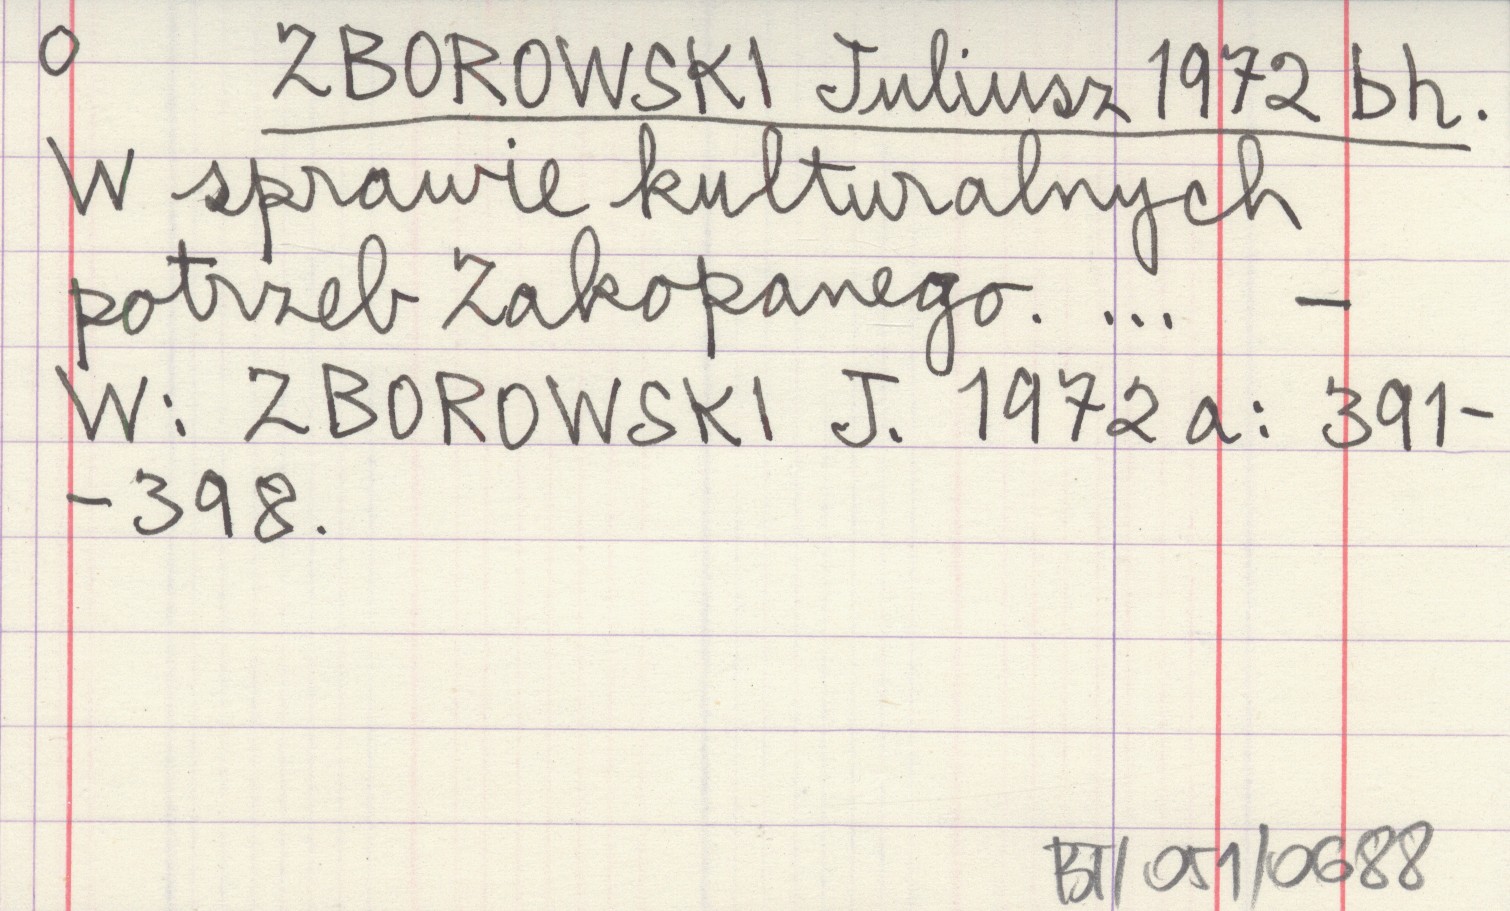 O ZBOROWSKI Juliusz 1972 bh.
W sprawie kulturalnych
potrzeb Zakopanego. ... -
W: ZBOROWSKI J. 1972 a: 391-
-398.
BT/051/0688